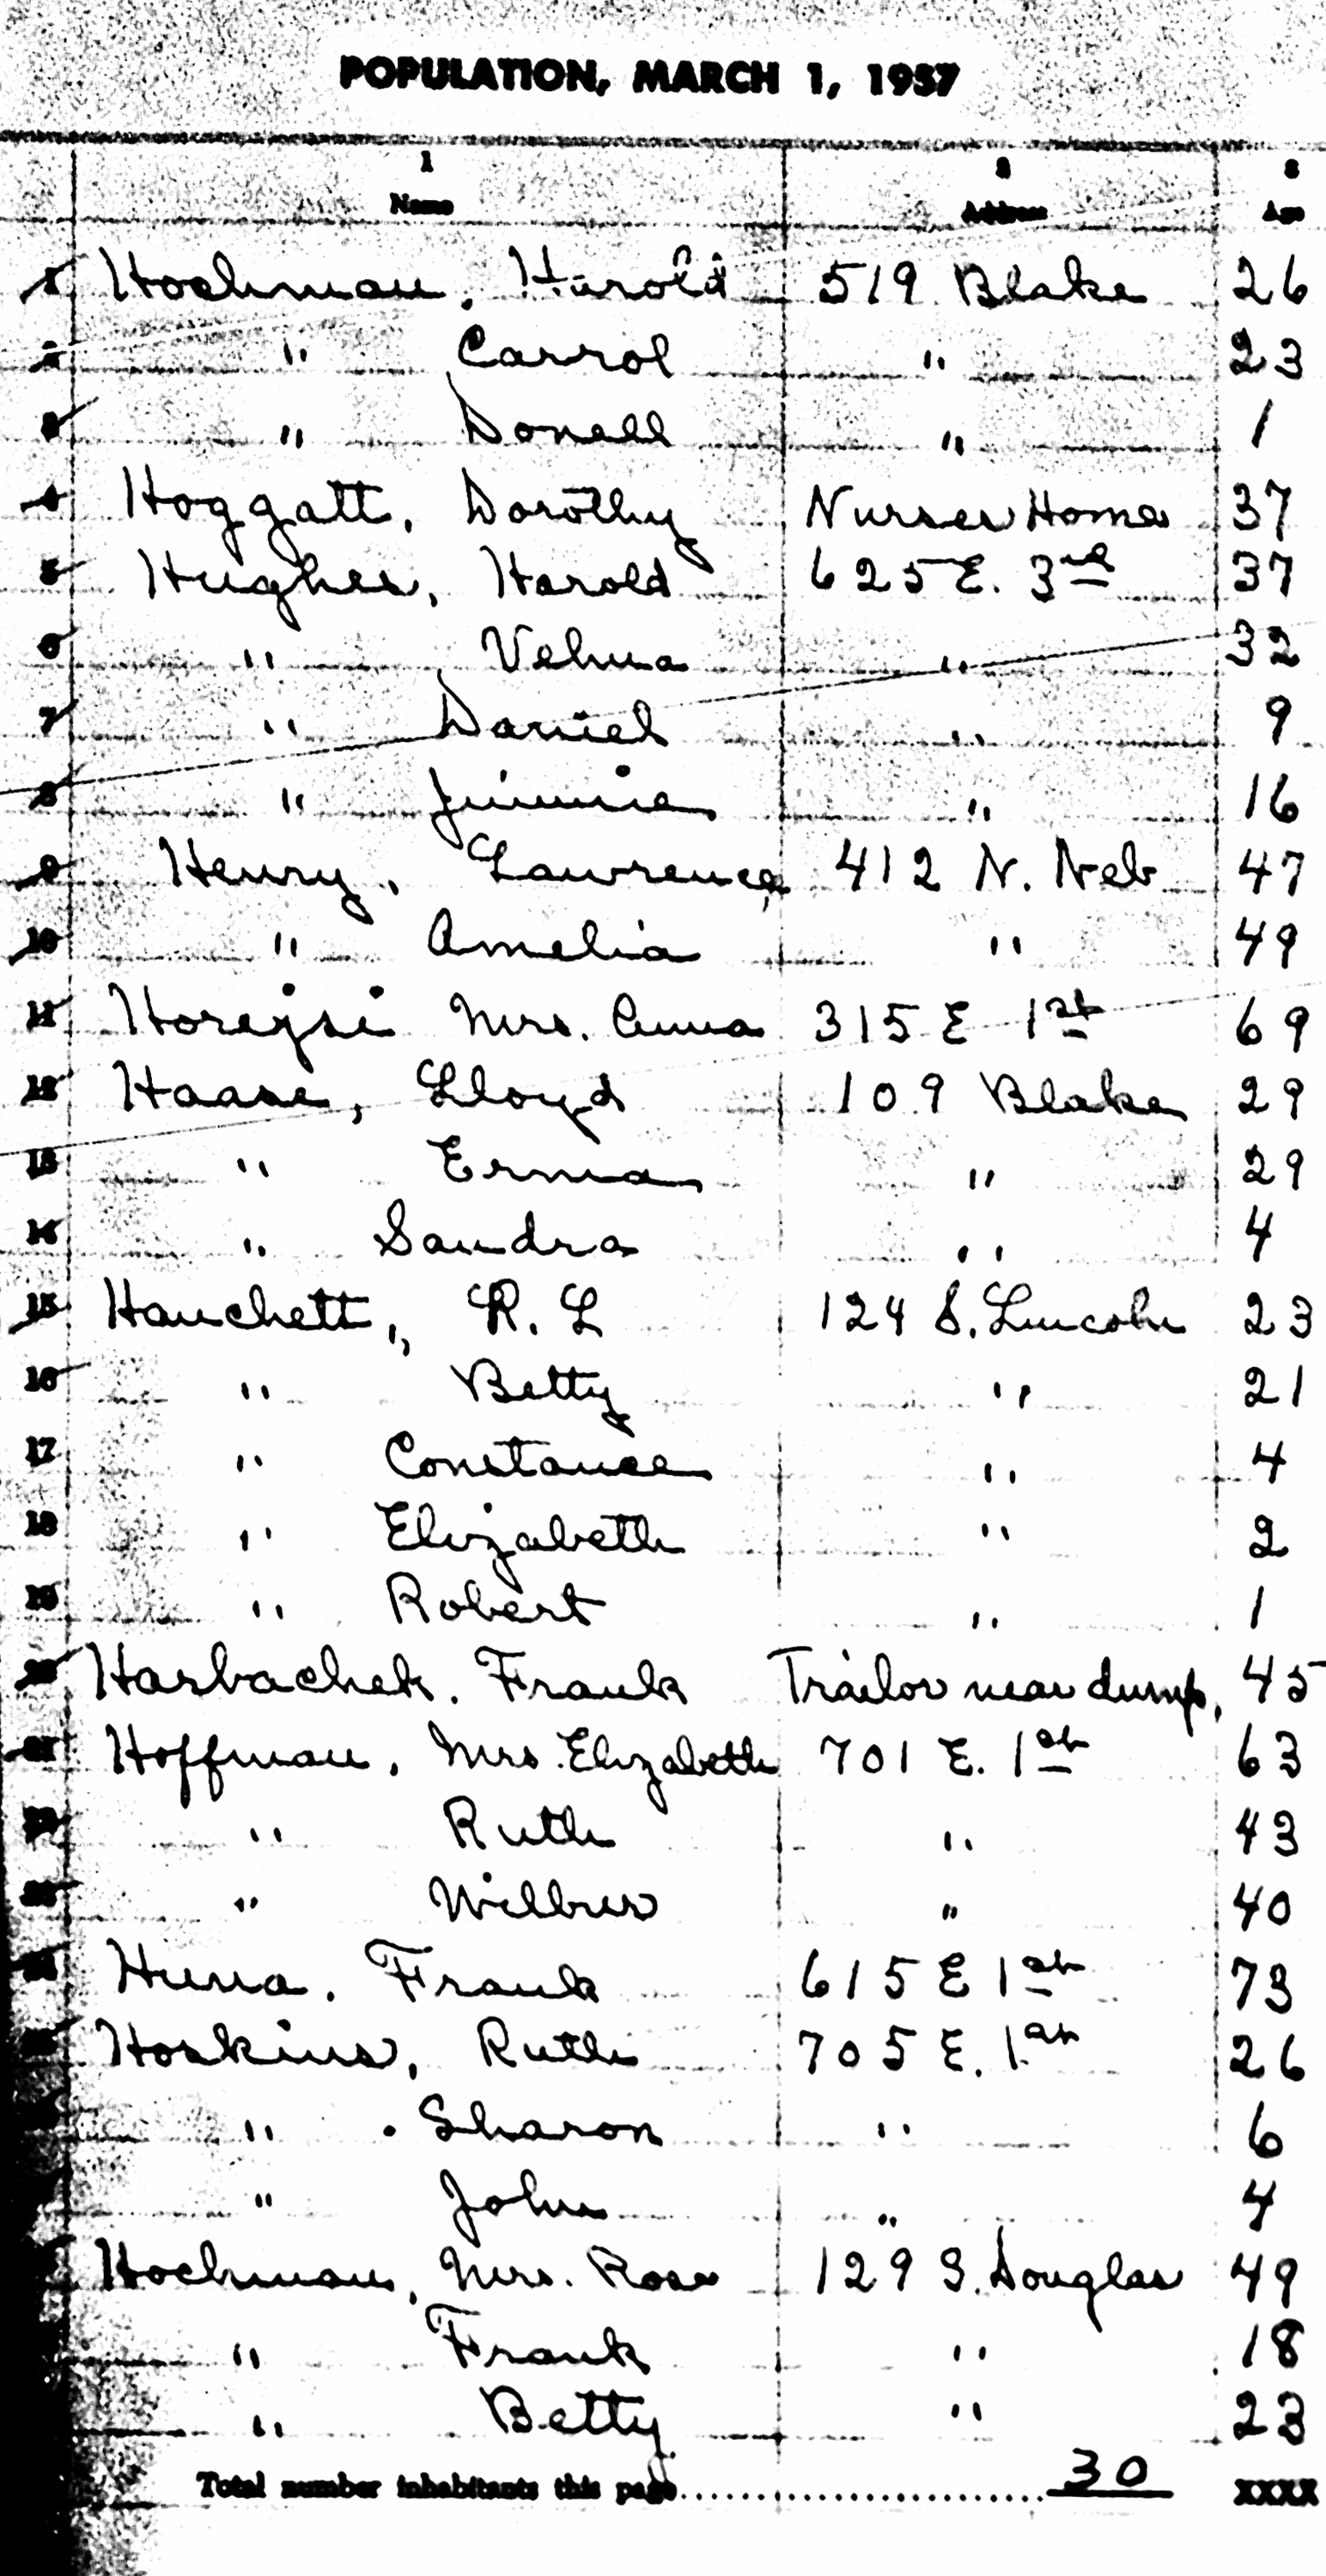 POPULATION, MARCH 1, 1957
1 2 3
Name Address Age
1 Hochman, Harold 519 Blake 26
2 " Carrol " 23
3 " Donell " 1
4 Hoggatt, Dorothy Nurses Home 37
5 Hughes, Harold 625 E. 3rd 37
6 " Velma " 32
7 " Daniel " 9
8 " Jimmie " 16
9 Henry, Lawrence 412 N. Neb 47
10 " Amelia " 49
11 Horejsi Mrs. Anna 315 E 1st 69
12 Haase, Lloyd 109 Blake 29
13 " Erma " 29
14 " Sandra " 4
15 Hanchett, R. L 124 S. Lincoln 23
16 " Betty " 21
17 " Constance " 4
18 " Elizabeth " 2
19 " Robert " 1
20 Harbachek. Frank Trailor near dump, 45
21 Hoffman, Mrs. Elizabeth 701 E. 1st 63
22 " Ruth " 43
23 " Wilbur " 40
24 Frank 615 E 1st 73
25 Hoskins, Ruth 705 E. 1st 26
" Sharon " 6
" John " 4
Hochman, Mrs. Rose 129 S. Douglas 49
" Frank " 18
" Betty " 23
Total number inhabitants this page 30 XXXX